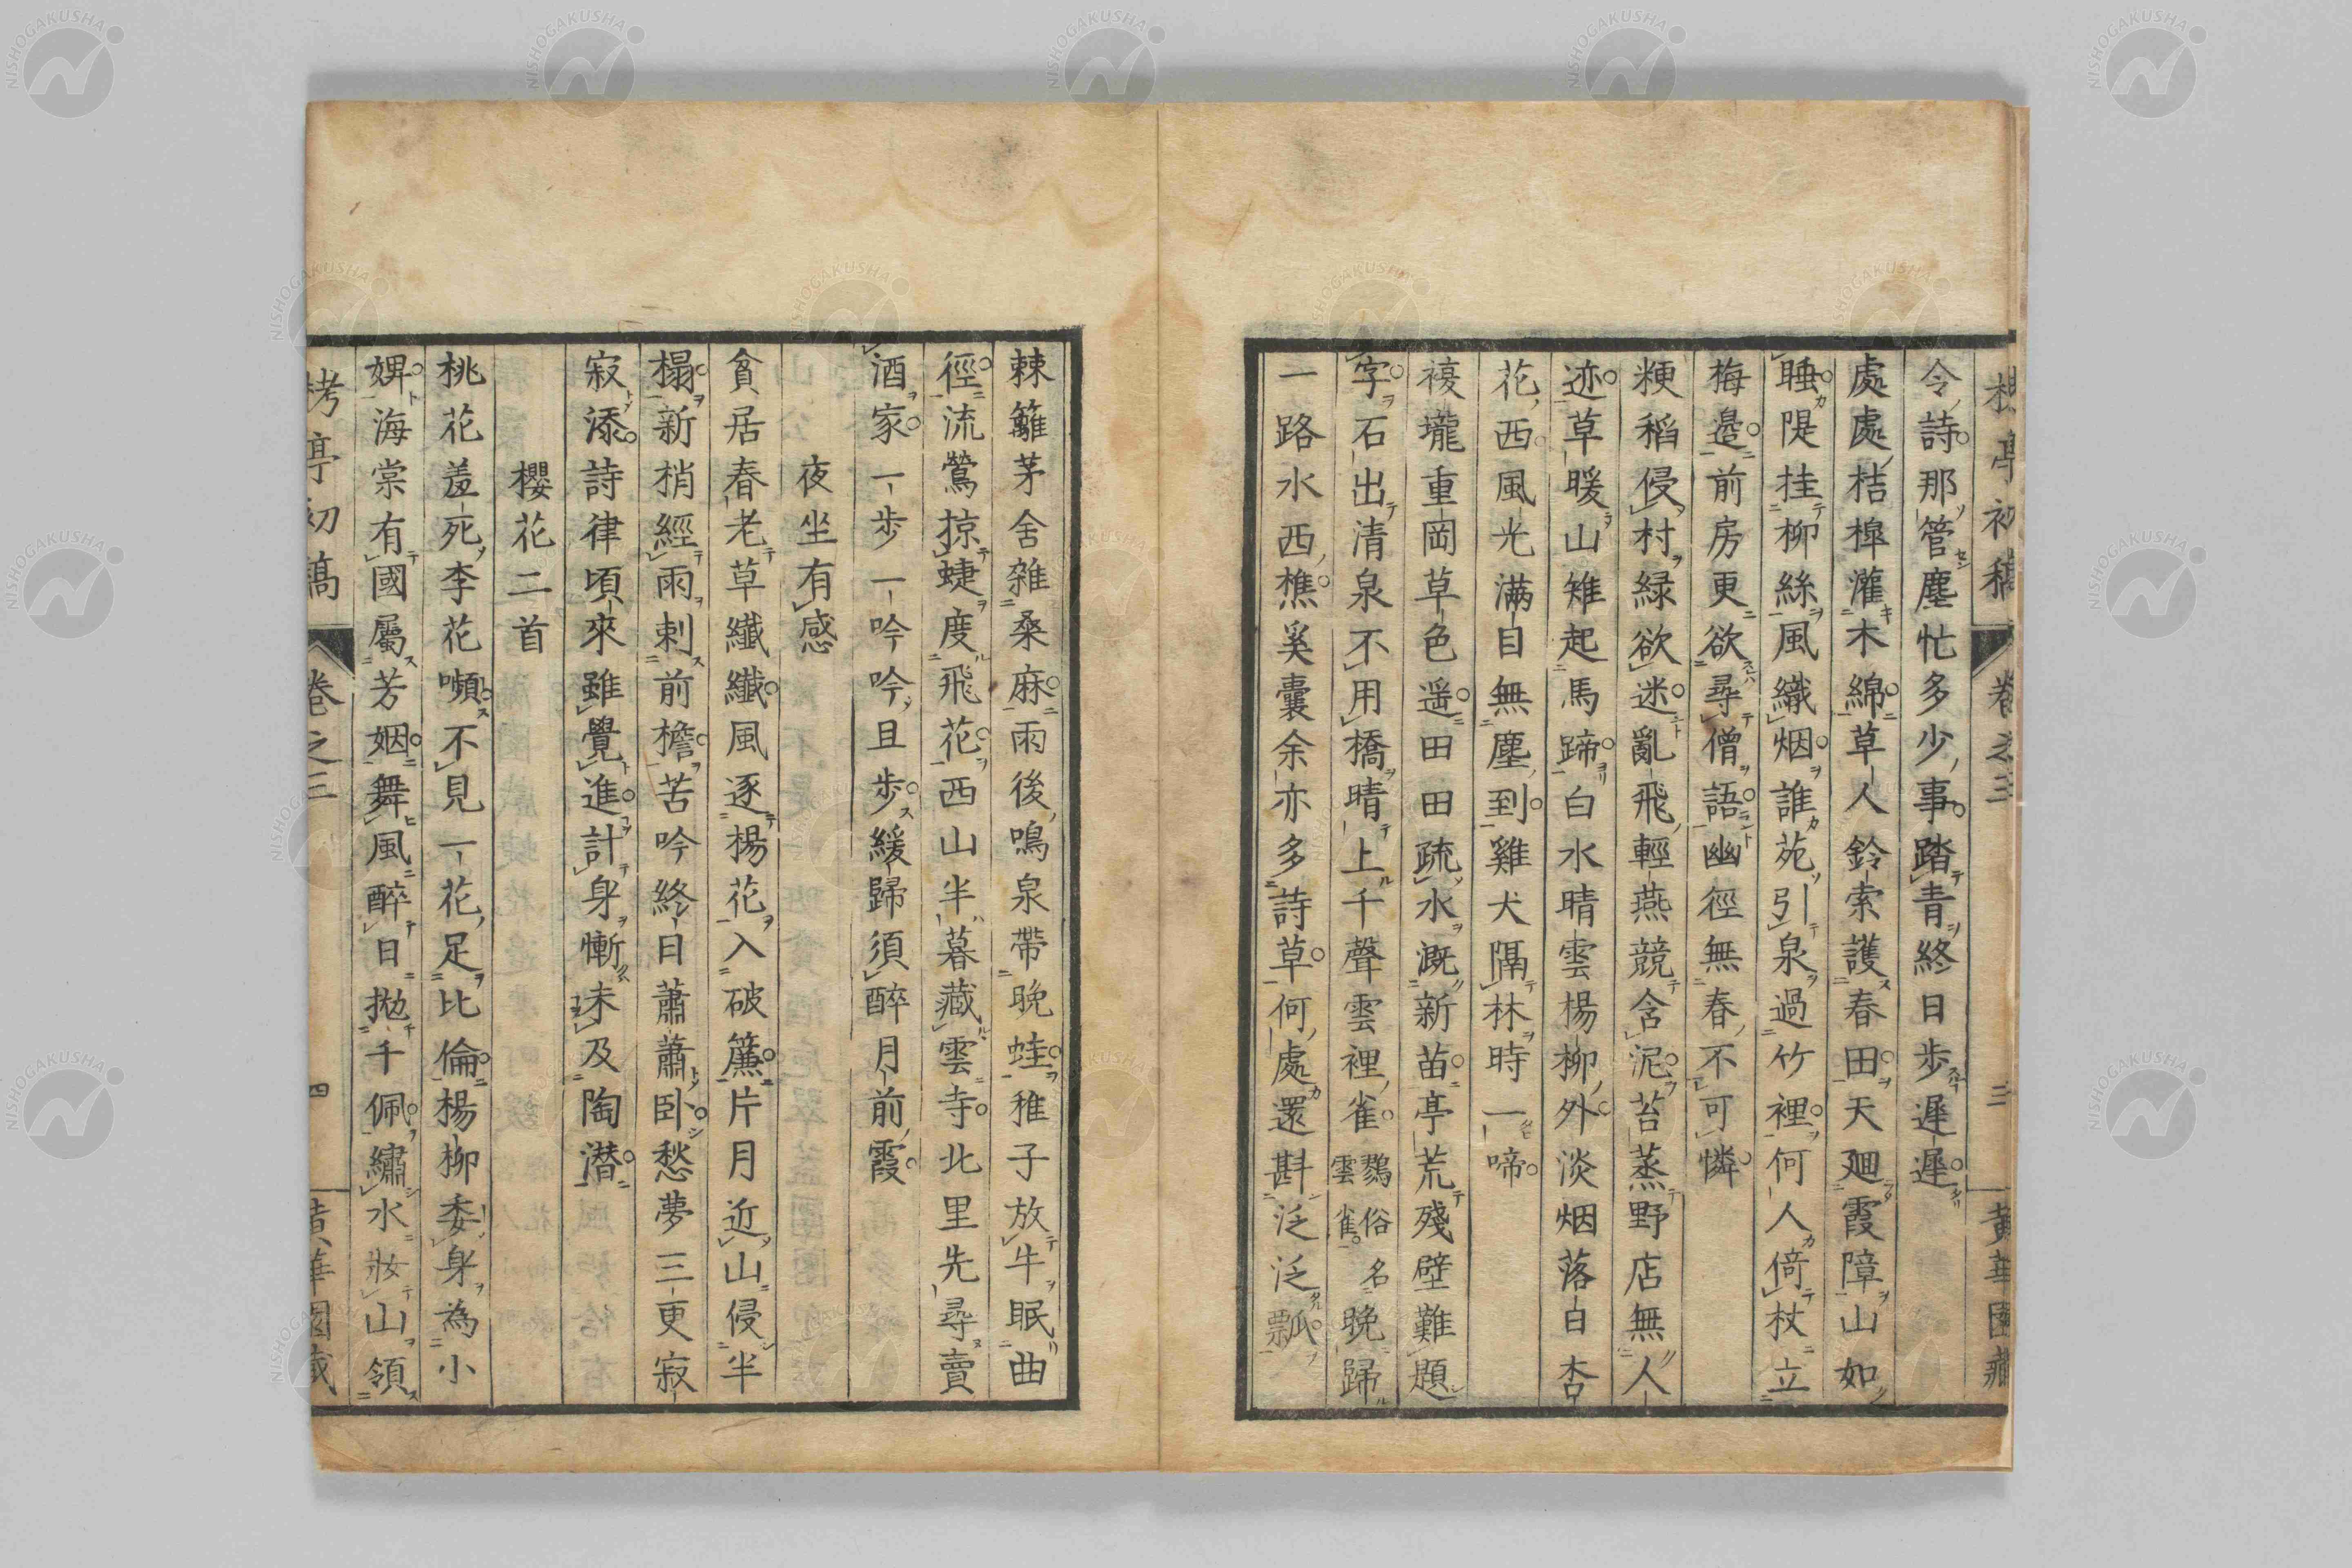 亭初稿 卷之三 三 黄華園藏
令詩那管塵忙多少事踏青終日步遲遲
處處桔橰灌木綿草人鈴索護春田天廻霞障山如
睡隄挂柳絲風織烟誰苑引泉過竹裡何人倚杖立
梅邉前房更欲尋僧語幽徑無春不可憐
粳稻侵村緑欲迷亂飛輕燕競含泥苔蒸野店無人
迹草暖山雉起馬蹄白水晴雲楊柳外淡烟落日杏
花西風光満目無塵到雞犬隔林時一啼
複壠重岡草色遥田田疏水漑新苗亭荒殘壁難題
字石出清泉不用橋晴上千聲雲裡雀鷚俗名雲雀晩歸
一路水西樵奚囊余亦多詩草何處還斟泛泛瓢
棘籬茅舍雑桑麻雨後鳴泉帶晩蛙稚子放牛眠曲
徑流鶯掠蜨度飛花西山半暮藏雲寺北里先尋賣
酒家一步一吟吟且步緩歸須醉月前霞
夜坐有感
貧居春老草纖纖風逐楊花入破簾片月近山侵半
榻新梢經雨刺前檐苦吟終日蕭蕭卧愁夢三更寂
寂添詩律頃來雖覺進計身慚未及陶潜
櫻花二首
桃花羞死李花嚬不見一花足比倫楊柳委身為小
婢海棠有國屬芳姻舞風醉日抛千佩繡水妝山領
栲亭初稿 卷之三 四 黄華園藏
NISHOGAKUSHA
NISHOGAKUSHA
NISHOGAKUSHA
NISHOGAKUSHA
NISHOGAKUSHA
NISHOGAKUSHA
NISHOGAKUSHA
NISHOGAKUSHA
NISHOGAKUSHA